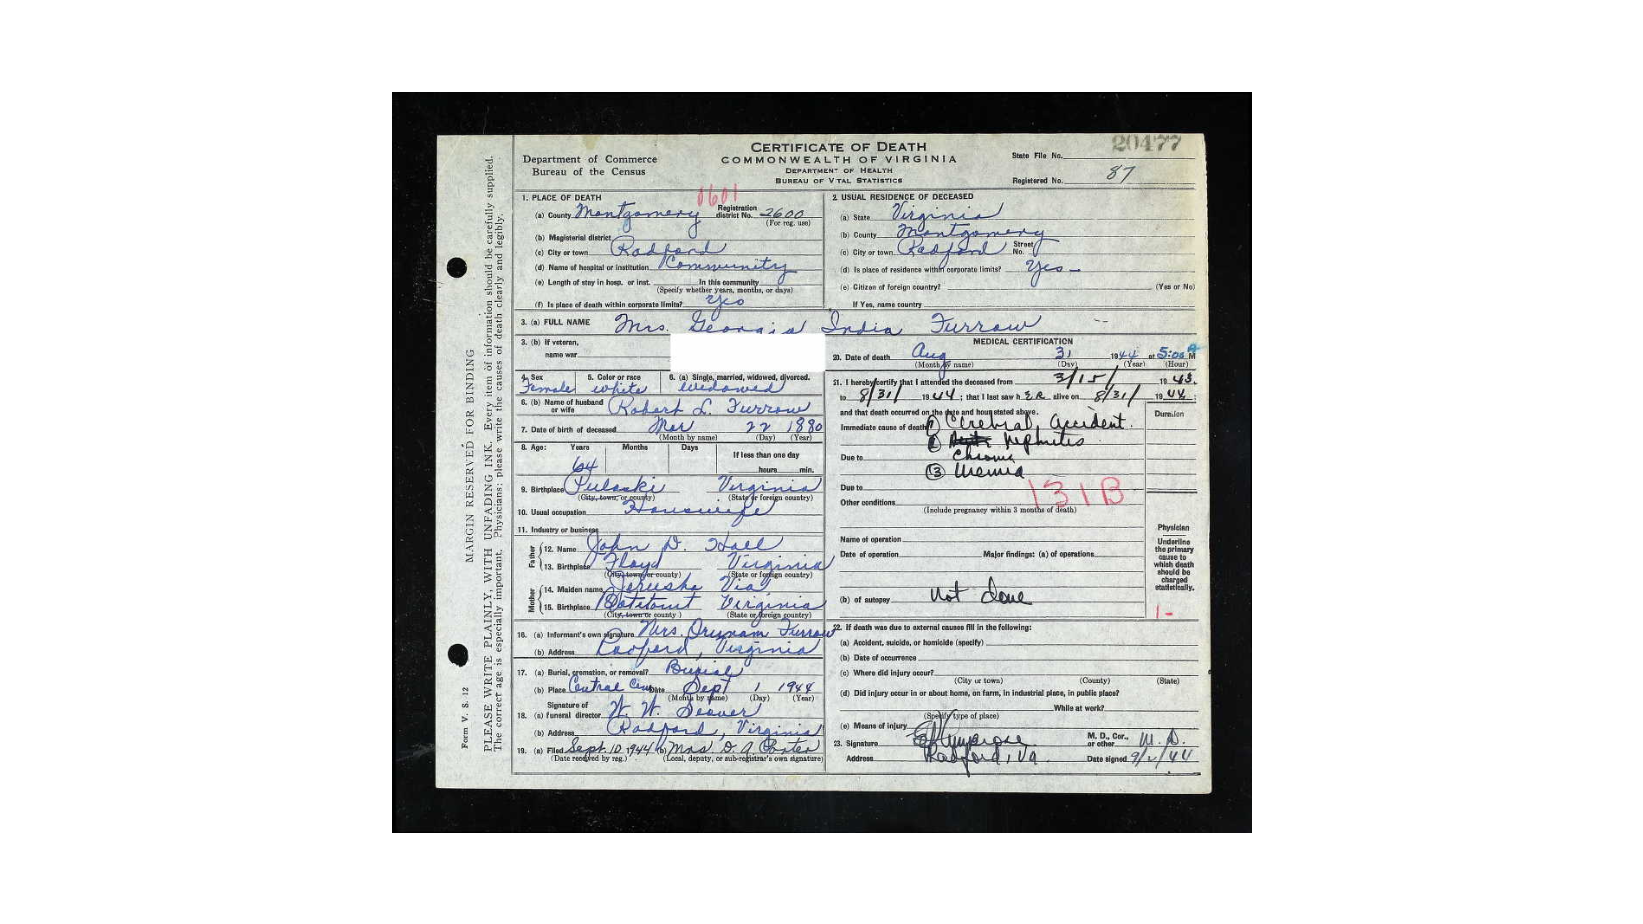 20477
CERTIFICATE OF DEATH
Department of Commerce
COMMONWEALTH OF VIRGINIA
State File No.
Bureau of the Census
DEPARTMENT OF HEALTH
BUREAU OF VITAL STATISTICS
Registered No. 87
MARGIN RESERVED FOR BINDING
PLEASE WRITE PLAINLY, WITH UNFADING INK. Every item of information should be carefully supplied.
The correct age is especially important. Physicians: please write the causes of death clearly and legibly.
Form V. S. 12
1. PLACE OF DEATH
0601
(a) County Montgomery Registration district No. 2600
(For reg. use)
(b) Magisterial district
(c) City or town Radford
(d) Name of hospital or institution Community
(e) Length of stay in hosp. or inst. In this community
(Specify whether years, months, or days)
(f) Is place of death within corporate limits? Yes
2. USUAL RESIDENCE OF DECEASED
(a) State Virginia
(b) County Montgomery
(c) City or town Radford Street No.
(d) Is place of residence within corporate limits? Yes-
(e) Citizen of foreign country? (Yes or No)
If Yes, name country
3. (a) FULL NAME Mrs. Georgia India Furrow
3. (b) If veteran,
name war
4. Sex 5. Color or race 6. (a) Single, married, widowed, divorced.
Female white widowed
6. (b) Name of husband or wife Robert L. Furrow
7. Date of birth of deceased Mar 22 1880
(Month by name) (Day) (Year)
8. Age: Years Months Days If less than one day
64 hours min.
9. Birthplace Pulaski Virginia
(City, town, or county) (State or foreign country)
10. Usual occupation Housewife
11. Industry or business
Father
12. Name John D. Hall
13. Birthplace Floyd Virginia
(City, town or county) (State or foreign country)
Mother
14. Maiden name Jerusha Via
15. Birthplace Botetourt Virginia
(City, town or county) (State or foreign country)
16. (a) Informant's own signature Mrs. Furrow
(b) Address Radford, Virginia
17. (a) Burial, cremation, or removal? Burial
(b) Place Central Cem Date Sept 1 1944
(Month by name) (Day) (Year)
Signature of
18. (a) funeral director W. W. Seaver
(b) Address Radford, Virginia
19. (a) Filed Sept. 10 1944 (b) Mrs D. A. Porter
(Date received by reg.) (Local, deputy, or sub-registrar's own signature)
MEDICAL CERTIFICATION
20. Date of death Aug 31 1944 at 5:00 M
(Month by name) (Day) (Year) (Hour)
21. I hereby certify that I attended the deceased from 3/15/ 1943.
to 8/31/ 1944; that I last saw h ER alive on 8/31/ 1944.
and that death occurred on the date and hour stated above. Duration
Immediate cause of death ① Cerebral Accident.
② Nephritis
Due to Chronic
③ Uremia
Due to
131B
Other conditions
(Include pregnancy within 3 months of death)
Name of operation
Date of operation Major findings: (a) of operations
(b) of autopsy Not done
Physician
Underline the primary cause to which death should be charged statistically.
1-
22. If death was due to external causes fill in the following:
(a) Accident, suicide, or homicide (specify)
(b) Date of occurrence
(c) Where did injury occur?
(City or town) (County) (State)
(d) Did injury occur in or about home, on farm, in industrial place, in public place?
While at work?
(Specify type of place)
(e) Means of injury
23. Signature M. D., Cor., or other M. D.
Address Radford, Va Date signed 9/2/44